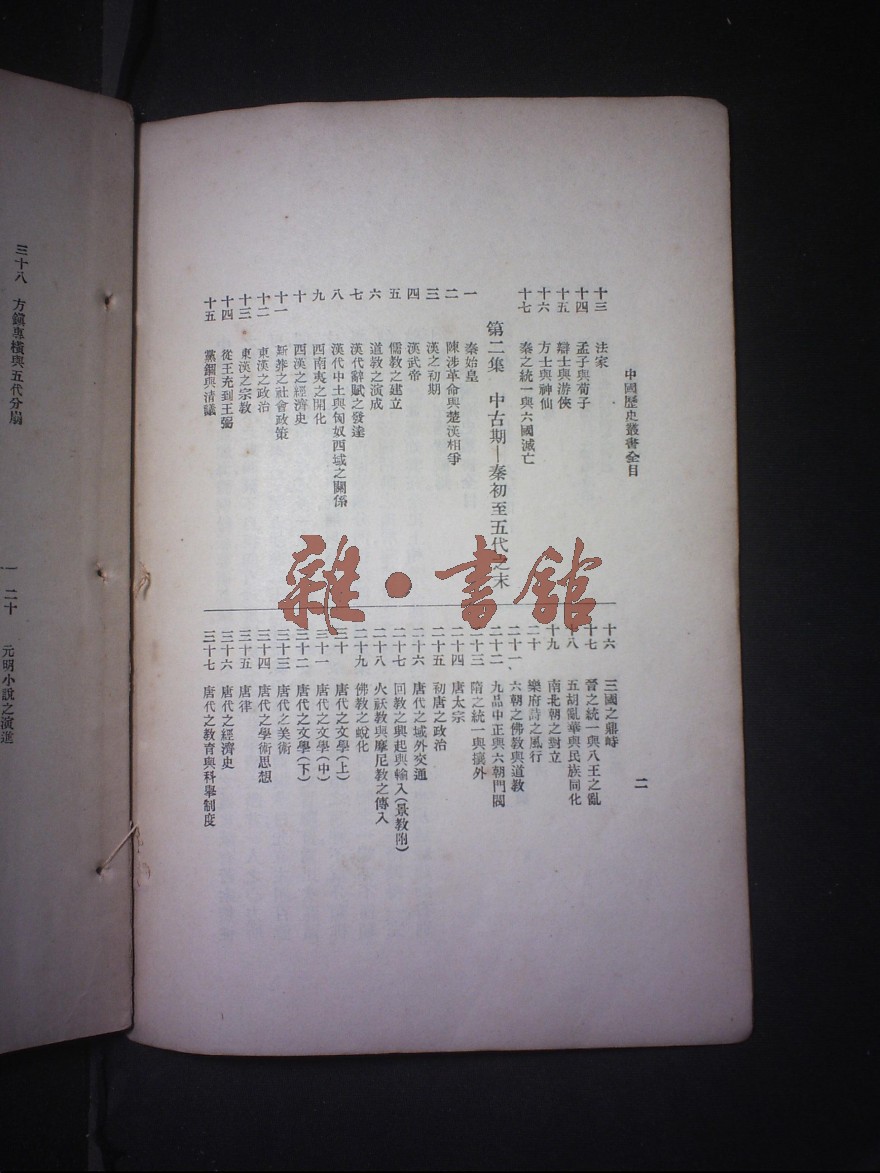 中國歷史叢書全目
二
十三 法家
十四 孟子與荀子
十五 辯士與游俠
十六 方士與神仙
十七 秦之統一與六國滅亡
第二集 中古期—秦初至五代之末
一 秦始皇
二 陳涉革命與楚漢相爭
三 漢之初期
四 漢武帝
五 儒教之建立
六 道教之演成
七 漢代辭賦之發達
八 漢代中土與匈奴西域之關係
九 西南夷之開化
十 西漢之經濟史
十一 新莽之社會政策
十二 東漢之政治
十三 東漢之宗教
十四 從王充到王弼
十五 黨錮與清議
十六 三國之鼎峙
十七 晉之統一與八王之亂
十八 五胡亂華與民族同化
十九 南北朝之對立
二十 樂府詩之風行
二十一 六朝之佛教與道教
二十二 九品中正與六朝門閥
二十三 隋之統一與攘外
二十四 唐太宗
二十五 初唐之政治
二十六 唐代之域外交通
二十七 回教之興起與輸入(景教附)
二十八 火祅教與摩尼教之傳入
二十九 佛教之蛻化
三十 唐代之文學(上)
三十一 唐代之文學(中)
三十二 唐代之文學(下)
三十三 唐代之美術
三十四 唐代之學術思想
三十五 唐律
三十六 唐代之經濟史
三十七 唐代之教育與科舉制度
三十八 方鎮專橫與五代分崩
二十 元明小說之演進
雜·書館